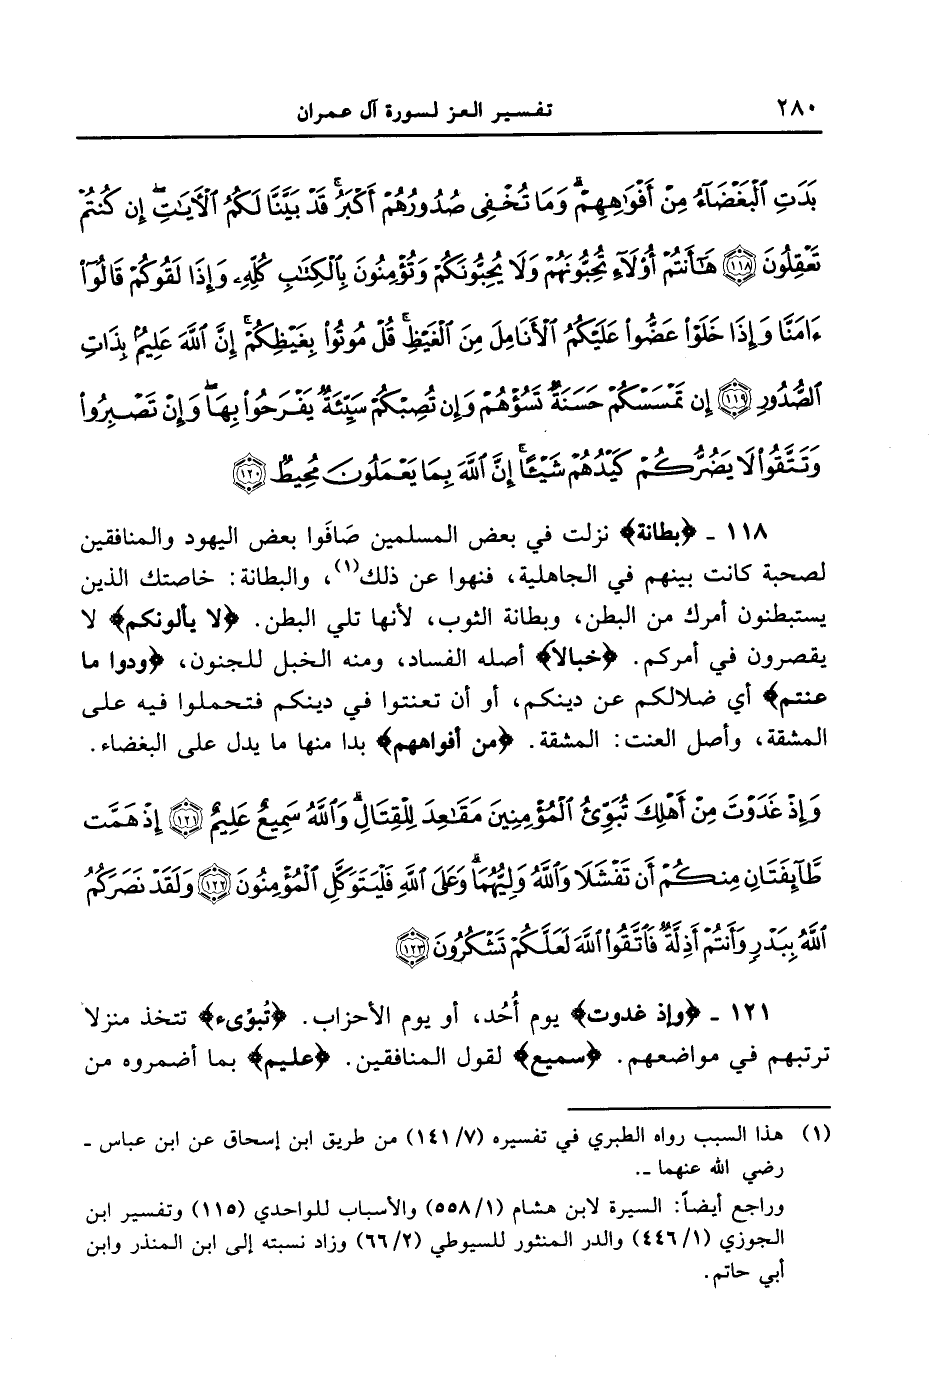 ٢٨٠ تفسير العز لسورة آل عمران
بَدَتِ ٱلْبَغْضَآءُ مِنْ أَفْوَٰهِهِمْ وَمَا تُخْفِى صُدُورُهُمْ أَكْبَرُ ۚ قَدْ بَيَّنَّا لَكُمُ ٱلْأَيَٰتِ ۖ إِن كُنتُمْ
تَعْقِلُونَ ﴿١١٨﴾ هَٰٓأَنتُمْ أُو۟لَآءِ تُحِبُّونَهُمْ وَلَا يُحِبُّونَكُمْ وَتُؤْمِنُونَ بِٱلْكِتَٰبِ كُلِّهِۦ وَإِذَا لَقُوكُمْ قَالُوٓا۟
ءَامَنَّا وَإِذَا خَلَوْا۟ عَضُّوا۟ عَلَيْكُمُ ٱلْأَنَامِلَ مِنَ ٱلْغَيْظِ ۚ قُلْ مُوتُوا۟ بِغَيْظِكُمْ ۗ إِنَّ ٱللَّهَ عَلِيمٌۢ بِذَاتِ
ٱلصُّدُورِ ﴿١١٩﴾ إِن تَمْسَسْكُمْ حَسَنَةٌ تَسُؤْهُمْ وَإِن تُصِبْكُمْ سَيِّئَةٌ يَفْرَحُوا۟ بِهَا ۖ وَإِن تَصْبِرُوا۟
وَتَتَّقُوا۟ لَا يَضُرُّكُمْ كَيْدُهُمْ شَيْـًٔا ۗ إِنَّ ٱللَّهَ بِمَا يَعْمَلُونَ مُحِيطٌ ﴿١٢٠﴾
١١٨ ـ ﴿بطانة﴾ نزلت في بعض المسلمين صَافَوا بعض اليهود والمنافقين
لصحبة كانت بينهم في الجاهلية، فنهوا عن ذلك(١)، والبطانة: خاصتك الذين
يستبطنون أمرك من البطن، وبطانة الثوب، لأنها تلي البطن. ﴿لا يألونكم﴾ لا
يقصرون في أمركم. ﴿خبالا﴾ أصله الفساد، ومنه الخبل للجنون، ﴿ودوا ما
عنتم﴾ أي ضلالكم عن دينكم، أو أن تعنتوا في دينكم فتحملوا فيه على
المشقة، وأصل العنت: المشقة. ﴿من أفواههم﴾ بدا منها ما يدل على البغضاء.
وَإِذْ غَدَوْتَ مِنْ أَهْلِكَ تُبَوِّئُ ٱلْمُؤْمِنِينَ مَقَٰعِدَ لِلْقِتَالِ ۗ وَٱللَّهُ سَمِيعٌ عَلِيمٌ ﴿١٢١﴾ إِذْ هَمَّت
طَّآئِفَتَانِ مِنكُمْ أَن تَفْشَلَا وَٱللَّهُ وَلِيُّهُمَا ۗ وَعَلَى ٱللَّهِ فَلْيَتَوَكَّلِ ٱلْمُؤْمِنُونَ ﴿١٢٢﴾ وَلَقَدْ نَصَرَكُمُ
ٱللَّهُ بِبَدْرٍ وَأَنتُمْ أَذِلَّةٌ ۖ فَٱتَّقُوا۟ ٱللَّهَ لَعَلَّكُمْ تَشْكُرُونَ ﴿١٢٣﴾
١٢١ ـ ﴿وإذ غدوت﴾ يوم أُحُد، أو يوم الأحزاب. ﴿تُبوّىء﴾ تتخذ منزلا
ترتبهم في مواضعهم. ﴿سميع﴾ لقول المنافقين. ﴿عليم﴾ بما أضمروه من
(١) هذا السبب رواه الطبري في تفسيره (٧/١٤١) من طريق ابن إسحاق عن ابن عباس ـ
رضي الله عنهما ـ.
وراجع أيضاً: السيرة لابن هشام (١/٥٥٨) والأسباب للواحدي (١١٥) وتفسير ابن
الجوزي (١/٤٤٦) والدر المنثور للسيوطي (٢/٦٦) وزاد نسبته إلى ابن المنذر وابن
أبي حاتم.